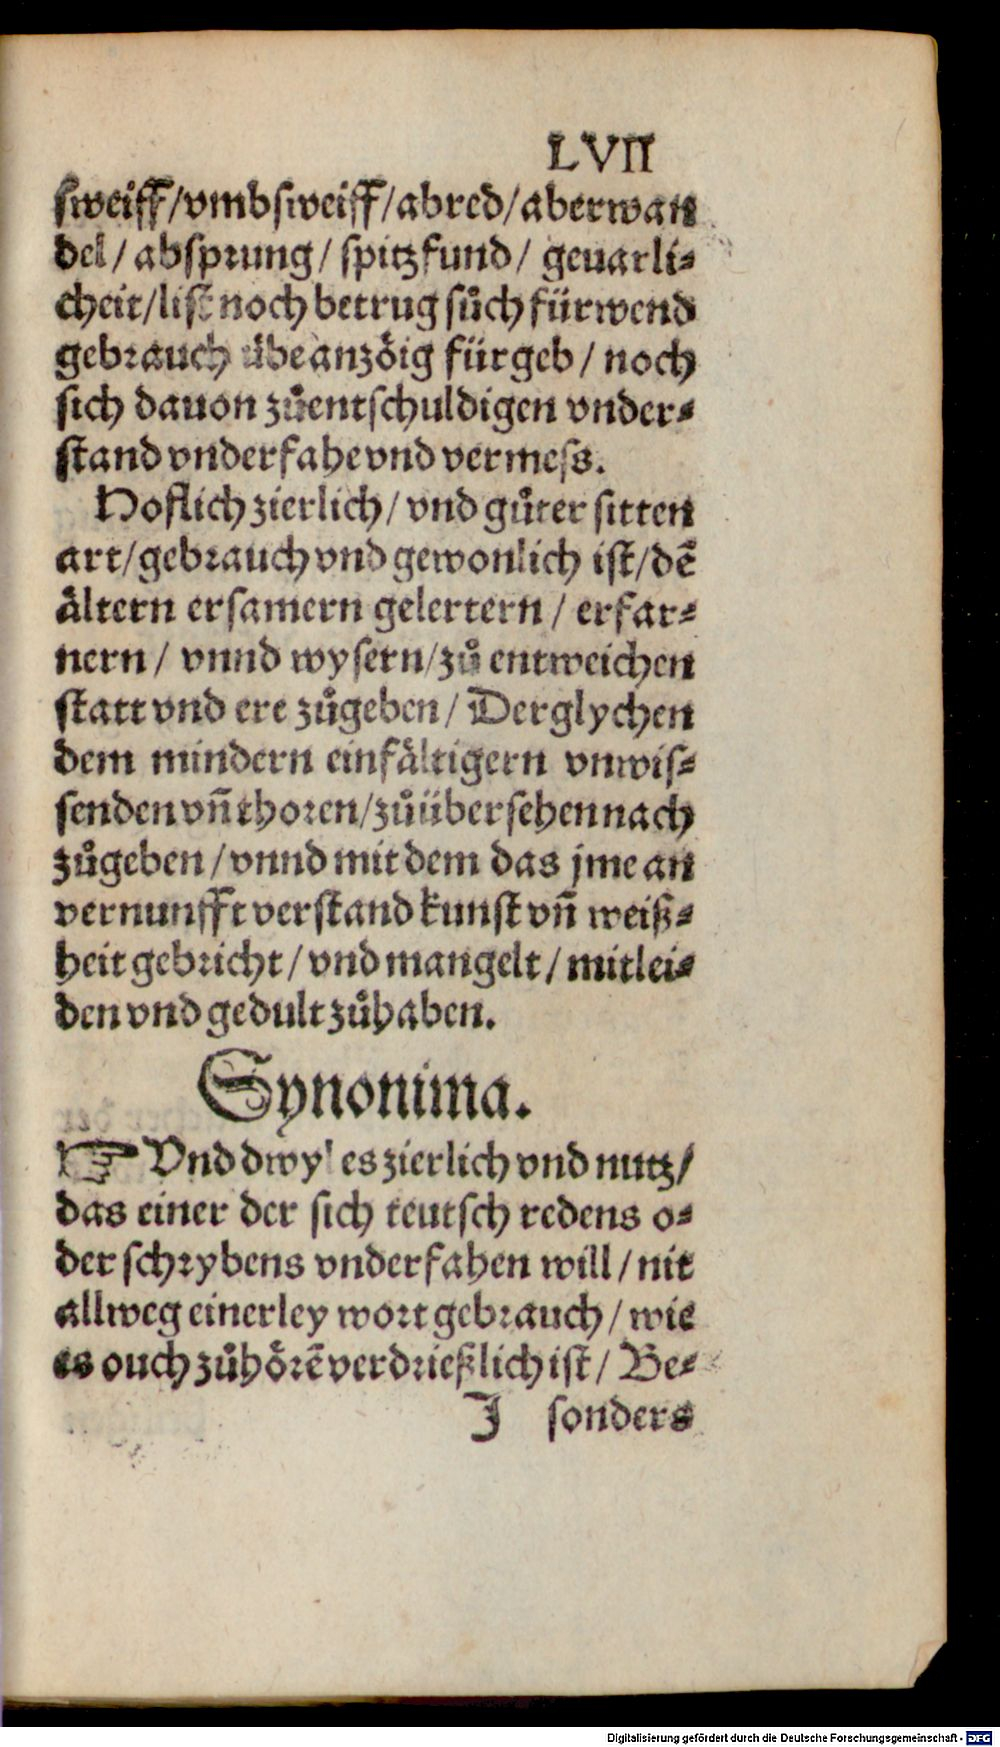 LVII
ſweiff/vmbſweiff/abred/aberwan
del/ abſprung/ ſpitzfund/ geuarli⸗
cheit/liſt noch betrug ſůch fürwend
gebrauch übe anzöig fürgeb/ noch
ſich dauon zůentſchuldigen vnder⸗
ſtand vnderfahe vnd vermeſs.
Hoflich zierlich/ vnd gůter ſitten
art/gebrauch vnd gewonlich iſt/dē
ältern erſamern gelertern/ erfar⸗
nern/ vnnd wyſern/zů entweichen
ſtatt vnd ere zůgeben/ Derglychen
dem mindern einfältigern vnwiſ⸗
ſenden vn̄ thoren/zůüberſehen nach
zůgeben/vnnd mit dem das jme an
vernunfft verſtand kunſt vn̄ weiß⸗
heit gebricht/ vnd mangelt/ mitlei⸗
den vnd gedult zůhaben.
Synonima.
☞ Vnd dwyl es zierlich vnd nutz/
das einer der ſich teutſch redens o⸗
der ſchrybens vnderfahen will/ nit
allweg einerley wort gebrauch/ wie
es ouch zůhörē verdrießlich iſt/ Be⸗
J ſonders
Digitalisierung gefördert durch die Deutsche Forschungsgemeinschaft - DFG